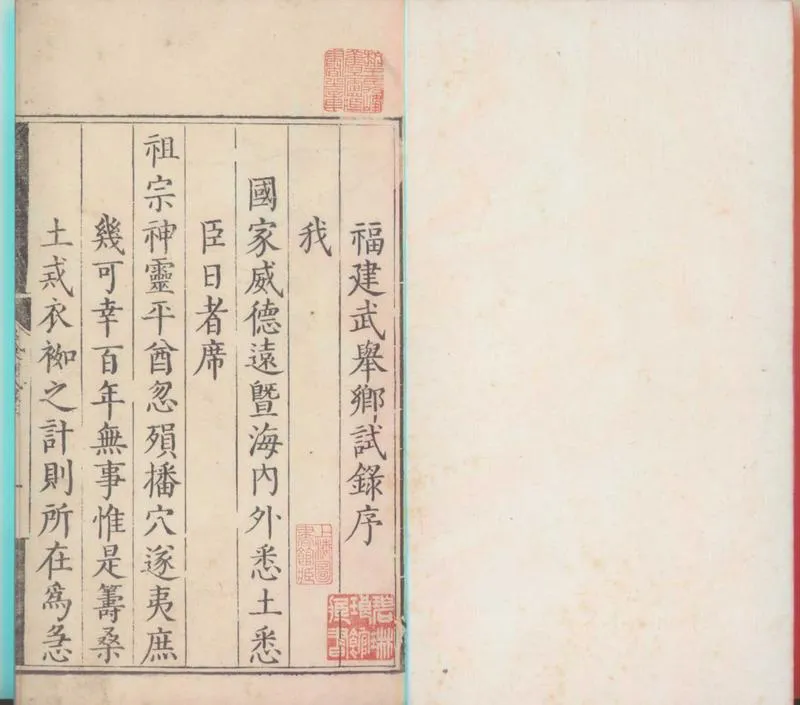 福建武舉鄉試錄序
我
國家威德遠曁海內外悉土悉
臣日者席
祖宗神靈平酋忽殞播穴遂夷庶
幾可幸百年無事惟是籌桑
土戒衣袽之計則所在爲急
上海圖書館藏